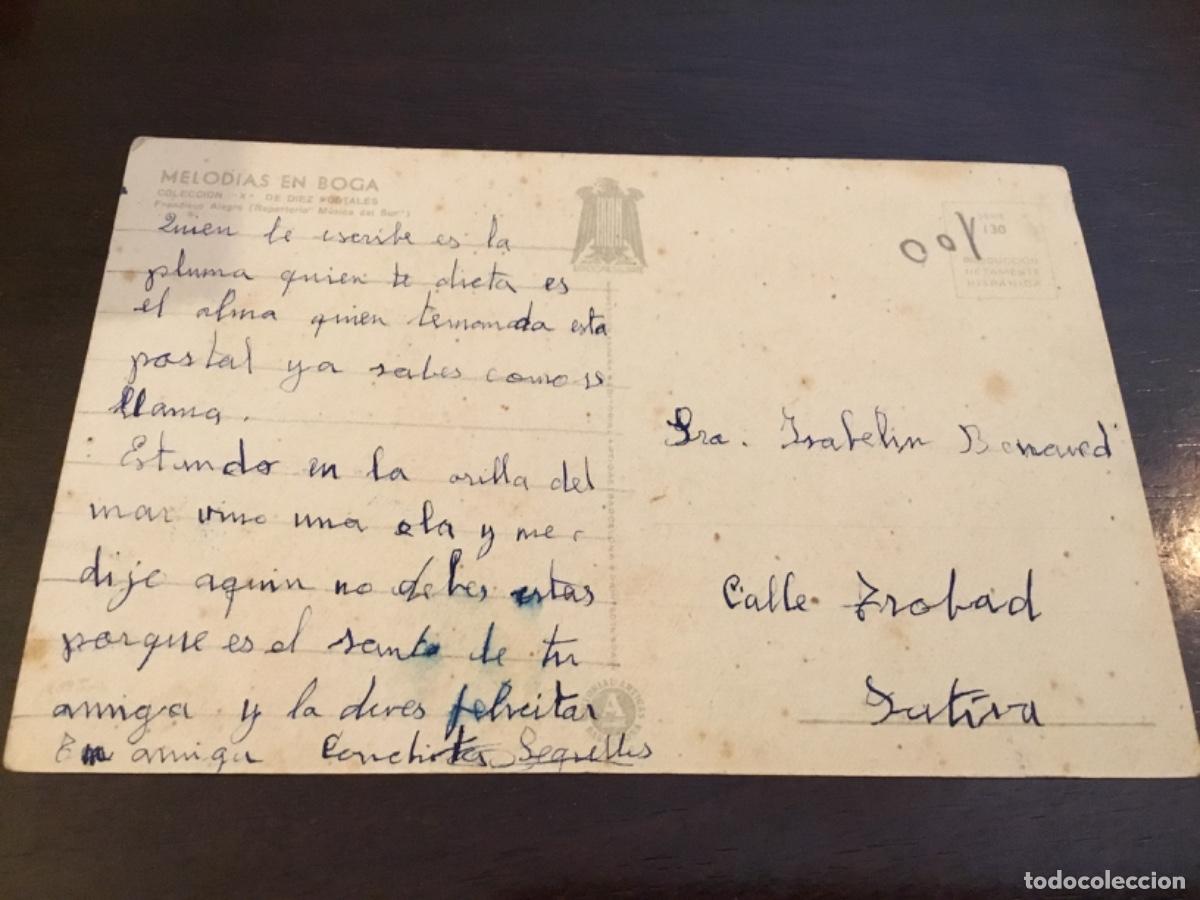 MELODIAS EN BOGA
COLECCION "X" DE DIEZ POSTALES
Francisco Alegre (Repertorio "Música del Sur")
Quien te escribe es la
pluma quien te dicta es
el alma quien temanda esta
postal ya sabes como se
llama.
Estando en la orilla del
mar vino una ola y me
dije aquin no debes estas
porque es el santo de tu
amiga y la deves felicitar
amiga Conchita Sequelles
SERIE
130
PRODUCCION
NETAMENTE
HISPANICA
00Y
Sra. Isabelin
Calle Trobad
Jativa
A
todocoleccion